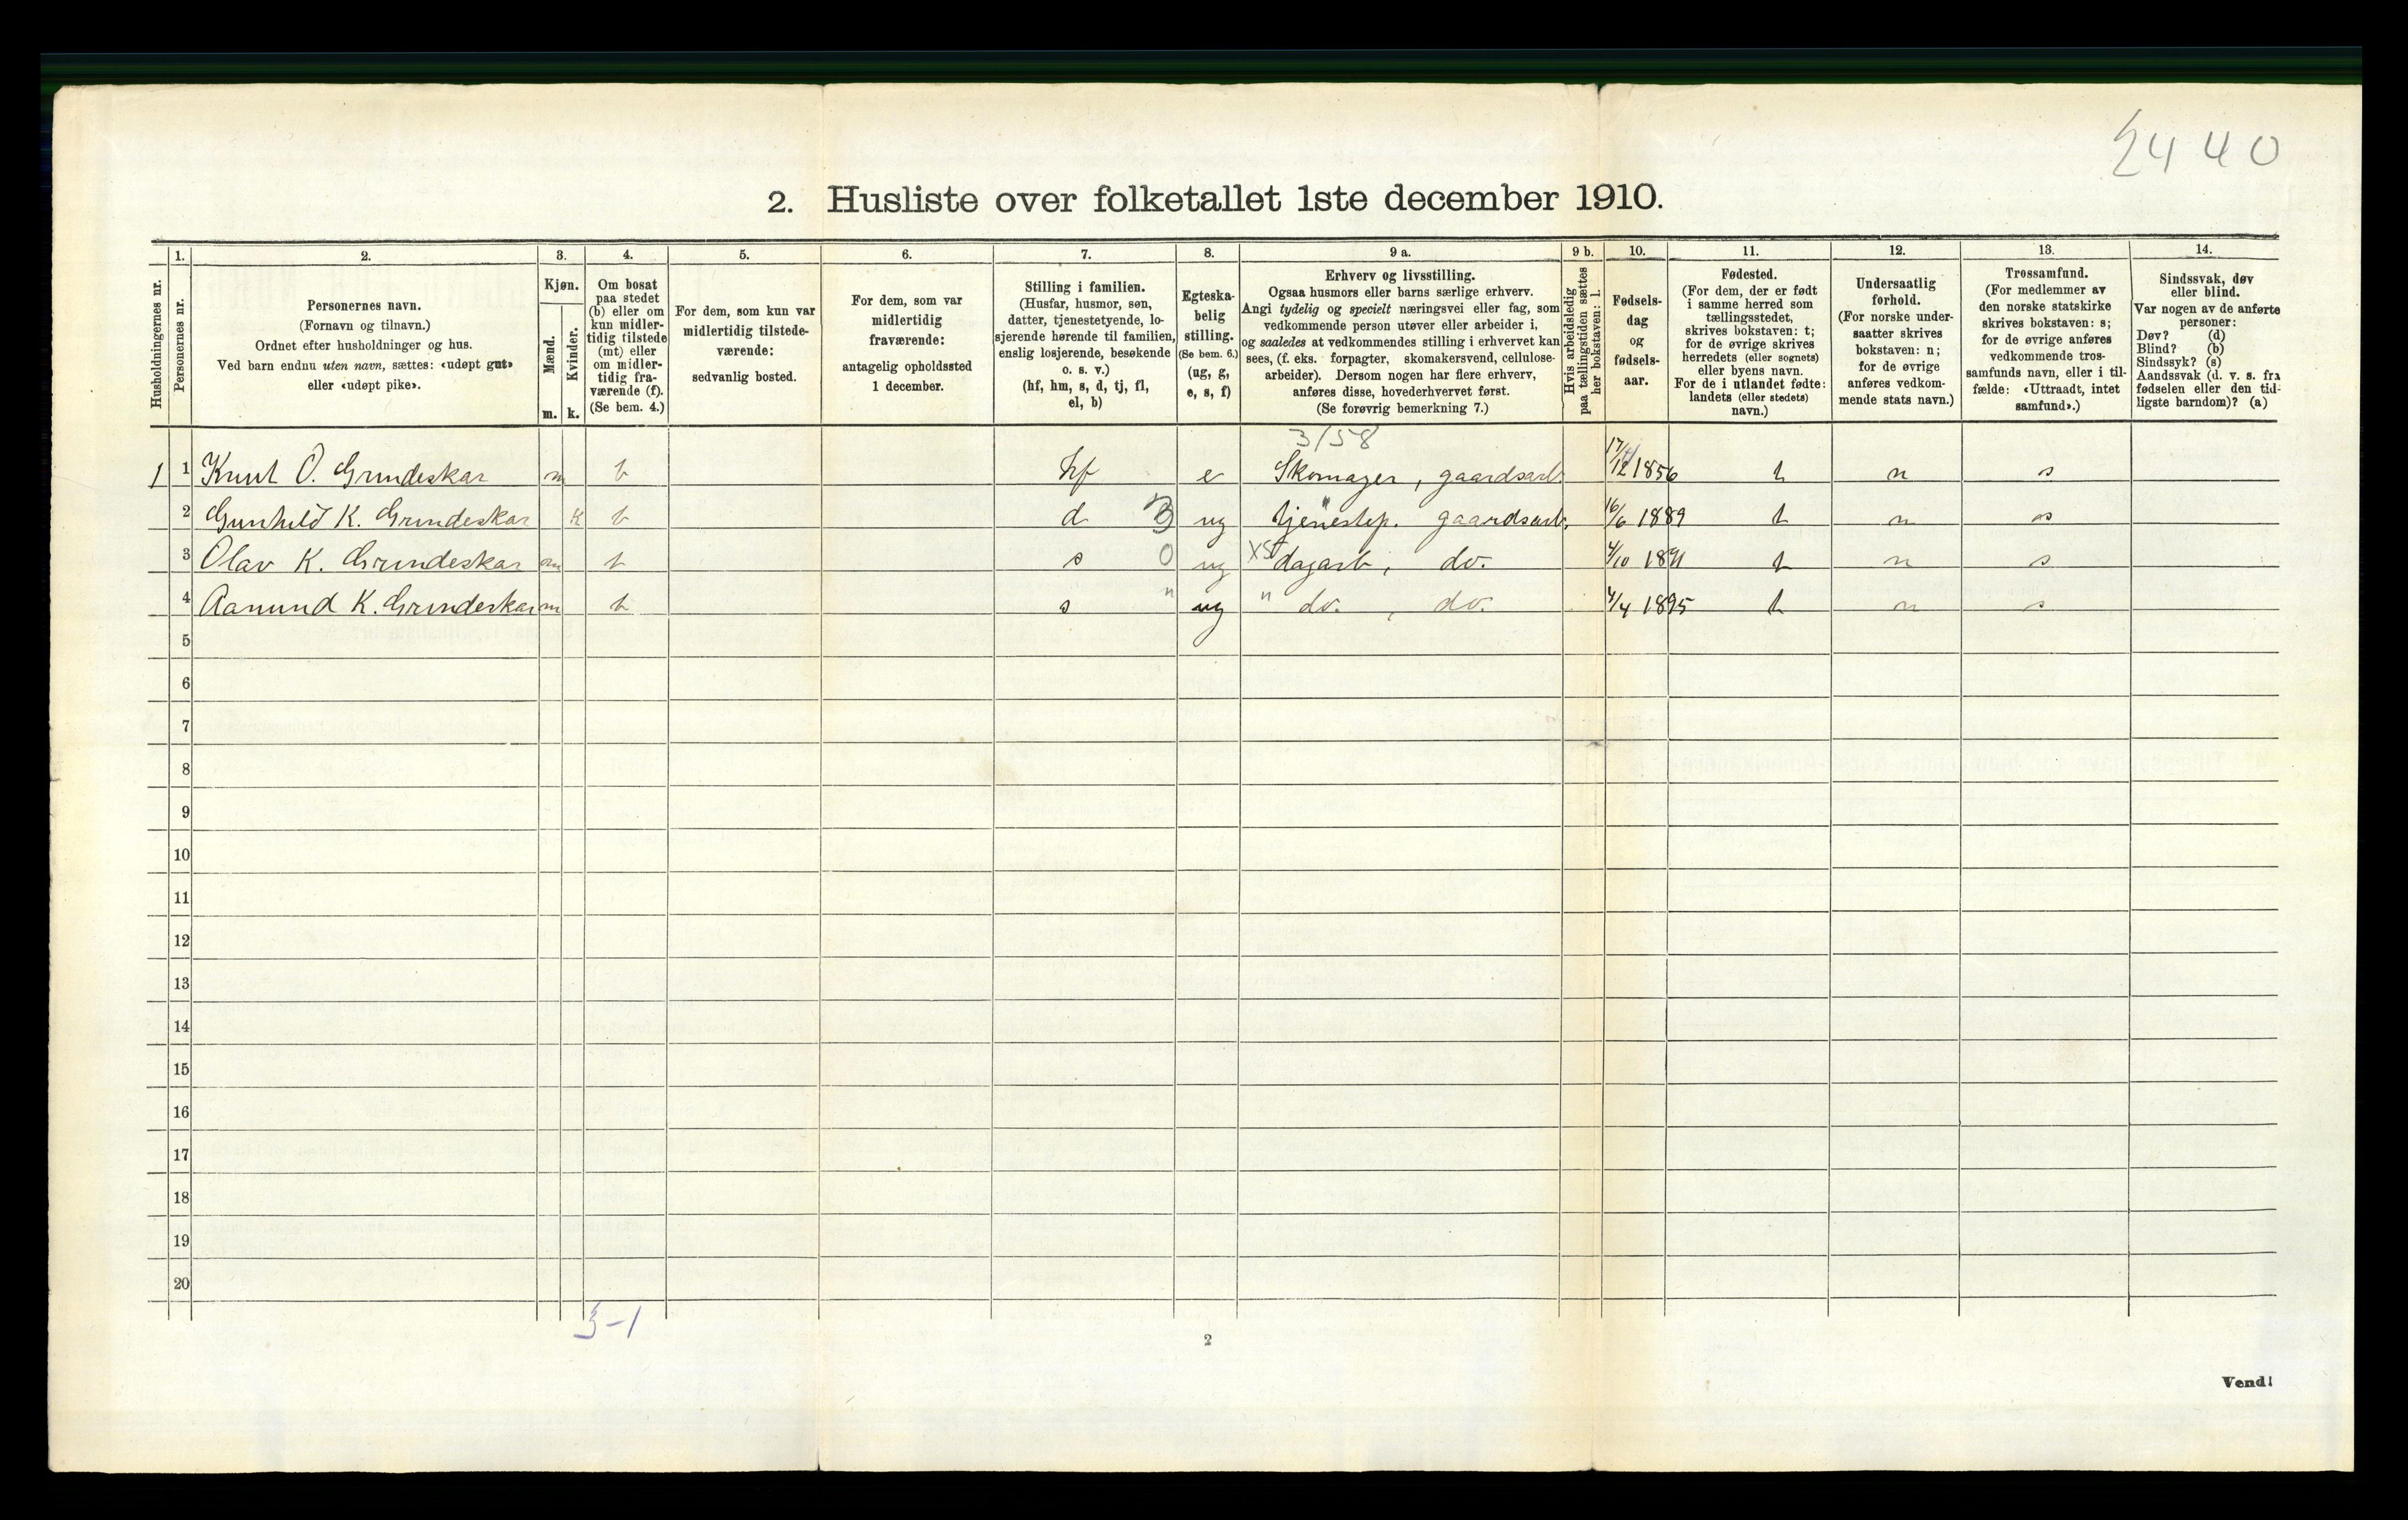 2440
2. Husliste over folketallet 1ste december 1910.
Husholdningernes nr.
1.
Personernes nr.
2.
Personernes navn.
(Fornavn og tilnavn.)
Ordnet efter husholdninger og hus.
Ved barn endnu uten navn, sættes: «udøpt gut»
eller «udøpt pike».
3.
Kjøn.
Mænd.
m.
Kvinder.
k.
4.
Om bosat
paa stedet
(b) eller om
kun midler-
tidig tilstede
(mt) eller
om midler-
tidig fra-
værende (f).
(Se bem. 4.)
5.
For dem, som kun var
midlertidig tilstede-
værende:
sedvanlig bosted.
6.
For dem, som var
midlertidig
fraværende:
antagelig opholdssted
1 december.
7.
Stilling i familien.
(Husfar, husmor, søn,
datter, tjenestetyende, lo-
sjerende hørende til familien,
enslig losjerende, besøkende
o. s. v.)
(hf, hm, s, d, tj, fl,
el, b)
8.
Egteska-
belig
stilling.
(Se bem. 6.)
(ug, g,
e, s, f)
9 a.
Erhverv og livsstilling.
Ogsaa husmors eller barns særlige erhverv.
Angi tydelig og specielt næringsvei eller fag, som
vedkommende person utøver eller arbeider i,
og saaledes at vedkommendes stilling i erhvervet kan
sees, (f. eks. forpagter, skomakersvend, cellulose-
arbeider). Dersom nogen har flere erhverv,
anføres disse, hovederhvervet først.
(Se forøvrig bemerkning 7.)
9 b.
Hvis arbeidsledig
paa tællingstiden sættes
her bokstaven: l.
10.
Fødsels-
dag
og
fødsels-
aar.
11.
Fødested.
(For dem, der er født
i samme herred som
tællingsstedet,
skrives bokstaven: t;
for de øvrige skrives
herredets (eller sognets)
eller byens navn.
For de i utlandet fødte:
landets (eller stedets)
navn.)
12.
Undersaatlig
forhold.
(For norske under-
saatter skrives
bokstaven: n;
for de øvrige
anføres vedkom-
mende stats navn.)
13.
Trossamfund.
(For medlemmer av
den norske statskirke
skrives bokstaven: s;
for de øvrige anføres
vedkommende tros-
samfunds navn, eller i til-
fælde: «Uttraadt, intet
samfund».)
14.
Sindssvak, døv
eller blind.
Var nogen av de anførte
personer:
Døv? (d)
Blind? (b)
Sindssyk? (s)
Aandssvak (d. v. s. fra
fødselen eller den tid-
ligste barndom)? (a)
3/58
1 1 Knut O. Grundeskar m b hf e Skomager, gaardsarb. 17/12 1856 t n s
2 Gunhild K. Grundeskar k b d B ug tjenestep. gaardsarb. 16/6 1889 t n s
3 Olav K. Grundeskar m b s 0 ug XSt dagarb, do. 4/10 1891 t n s
4 Aanund K. Grundeskar m b s " ug " do. , do. 4/4 1895 t n s
5
6
7
8
9
10
11
12
13
14
15
16
17
18
19
20
3-1
2
Vend!